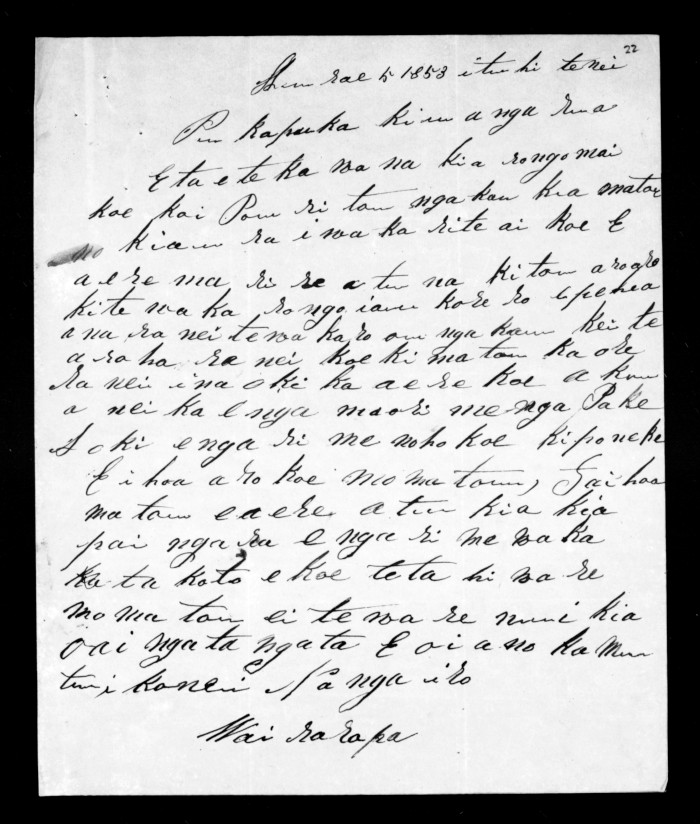 22
Hurae 5 1853 i tuhi te nei
Pu kapuka ki u a nga rua
E ta e te ka wa na kia rongo mai
koe kai Pou ri tou nga kau kia matou
no kiau ra i wa ka rite ai koe E
a e re ma ri re a tu na ki tou aroaro
ki te wa ka rongo i au kore ro E pehea
a na ra nei te wa ka ro o nga kau kei te
a ro ha ra nei koe ki ma tou ka ore
ra nei i na o ki ka a e re koe a kuu
a nei ka e nga maori me nga Pake
ha o ki e nga ri me noho koe ki poneke
E i hoa a ro koe mo ma tou, Tai hoa
ma tou e a ere a tu kia kia
pai nga ra e nga ri me wa ka
ka ta koto e koe te ta hi wa re
mo ma tou ei te wa re nui kia
o ai nga ta nga ta E oi a no ka mu
tu i konei Na nga i ro
Wai ra ra pa